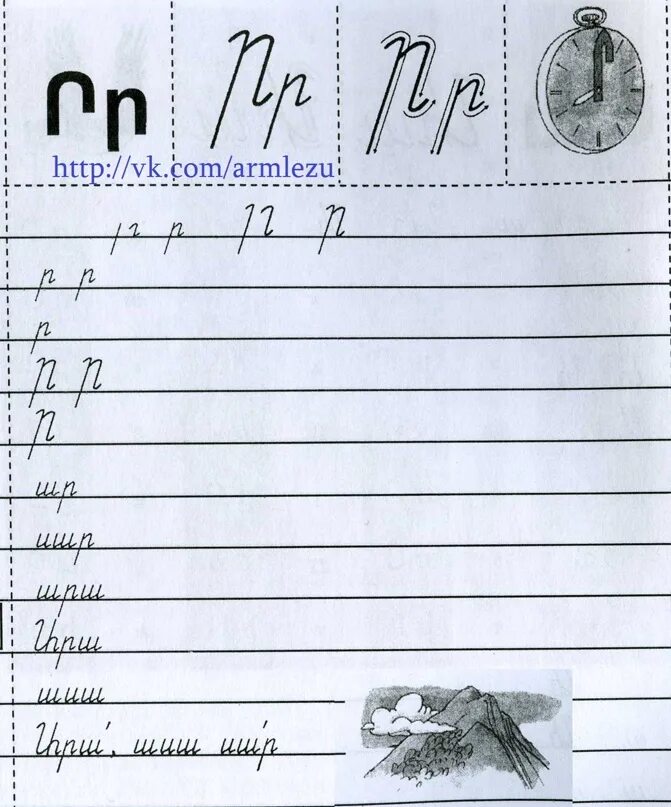 Րր Րր Րր
http://vk.com/armlezu
ր Ր
ր ր
ր
Ր Ր
Ր
ար
սար
արա
Արա
ասա
Արա՛, ասա սա՛ր